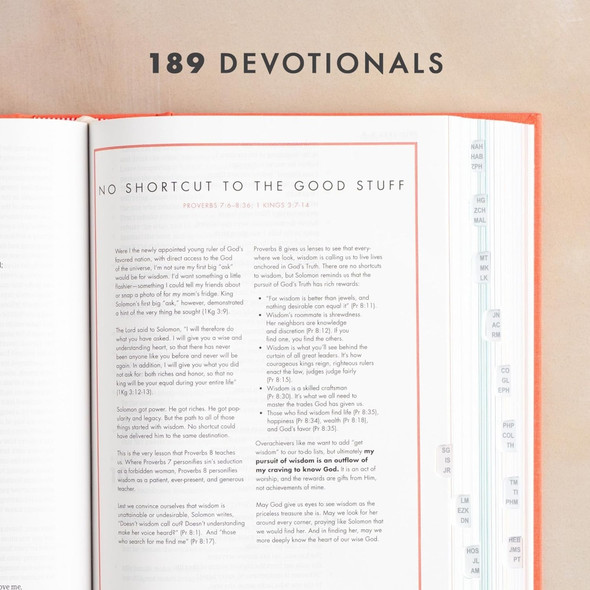 189 DEVOTIONALS
NO SHORTCUT TO THE GOOD STUFF
PROVERBS 7:6–8:36; 1 KINGS 3:7-14
Were I the newly appointed young ruler of God's
favored nation, with direct access to the God
of the universe, I'm not sure my first big "ask"
would be for wisdom. I'd want something a little
flashier—something I could tell my friends about
or snap a photo of for my mom's fridge. King
Solomon's first big "ask," however, demonstrated
a hint of the very thing he sought (1Kg 3:9).
The Lord said to Solomon, "I will therefore do
what you have asked. I will give you a wise and
understanding heart, so that there has never
been anyone like you before and never will be
again. In addition, I will give you what you did
not ask for: both riches and honor, so that no
king will be your equal during your entire life"
(1Kg 3:12-13).
Solomon got power. He got riches. He got pop-
ularity and legacy. But the path to all of those
things started with wisdom. No shortcut could
have delivered him to the same destination.
This is the very lesson that Proverbs 8 teaches
us. Where Proverbs 7 personifies sin's seduction
as a forbidden woman, Proverbs 8 personifies
wisdom as a patient, ever-present, and generous
teacher.
Lest we convince ourselves that wisdom is
unattainable or undesirable, Solomon writes,
"Doesn't wisdom call out? Doesn't understanding
make her voice heard?" (Pr 8:1). And "those
who search for me find me" (Pr 8:17).
Proverbs 8 gives us lenses to see that every-
where we look, wisdom is calling us to live lives
anchored in God's Truth. There are no shortcuts
to wisdom, but Solomon reminds us that the
pursuit of God's Truth has rich rewards:
• "For wisdom is better than jewels, and
nothing desirable can equal it" (Pr 8:11).
• Wisdom's roommate is shrewdness.
Her neighbors are knowledge
and discretion (Pr 8:12). If you
find one, you find the others.
• Wisdom is what you'll see behind the
curtain of all great leaders. It's how
courageous kings reign, righteous rulers
enact the law, judges judge fairly
(Pr 8:15).
• Wisdom is a skilled craftsman
(Pr 8:30). It's what we all need to
master the trades God has given us.
• Those who find wisdom find life (Pr 8:35),
happiness (Pr 8:34), wealth (Pr 8:18),
and God's favor (Pr 8:35).
Overachievers like me want to add "get
wisdom" to our to-do lists, but ultimately my
pursuit of wisdom is an outflow of
my craving to know God. It is an act of
worship, and the rewards are gifts from Him,
not achievements of mine.
May God give us eyes to see wisdom as the
priceless treasure she is. May we look for her
around every corner, praying like Solomon that
we would find her. And in finding her, may we
more deeply know the heart of our wise God.
NAH
HAB
ZPH
HG
ZCH
MAL
MT
MK
LK
JN
AC
RM
CO
GL
EPH
PHP
COL
TH
SG
IS
JR
TM
TI
PHM
LM
EZK
DN
HEB
JMS
PT
HOS
JL
AM
ove me.